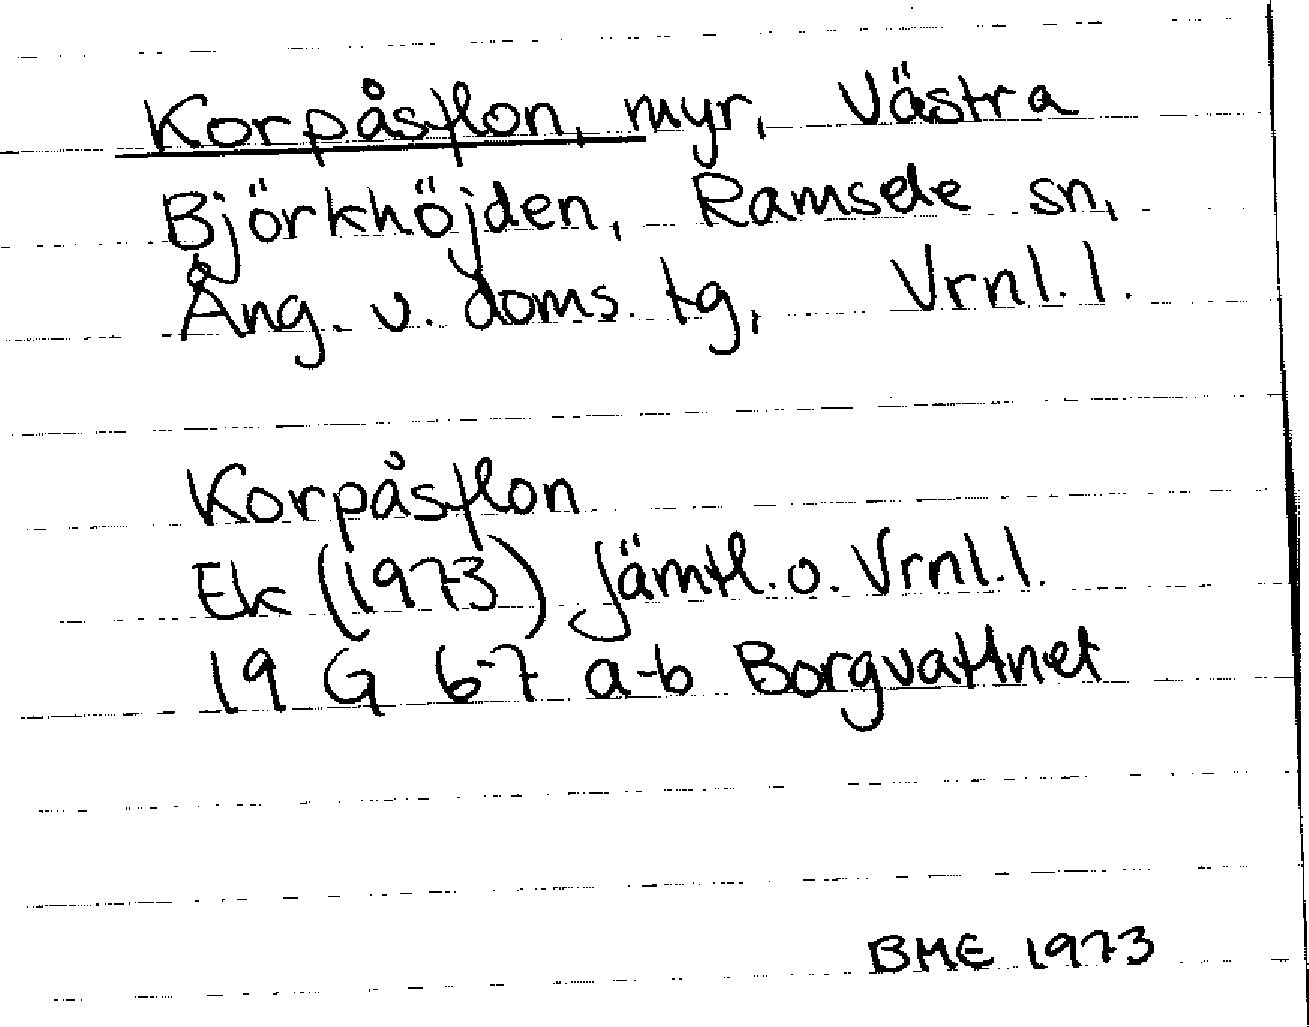 Korpåsflon, myr, Västra
Björkhöjden, Ramsele sn,
Ång. v. doms. tg, Vrnl. l.
Korpåsflon
Ek (1973) Jämtl. o. Vrnl. l.
19 G 6-7 a-b Borgvattnet
BME 1973